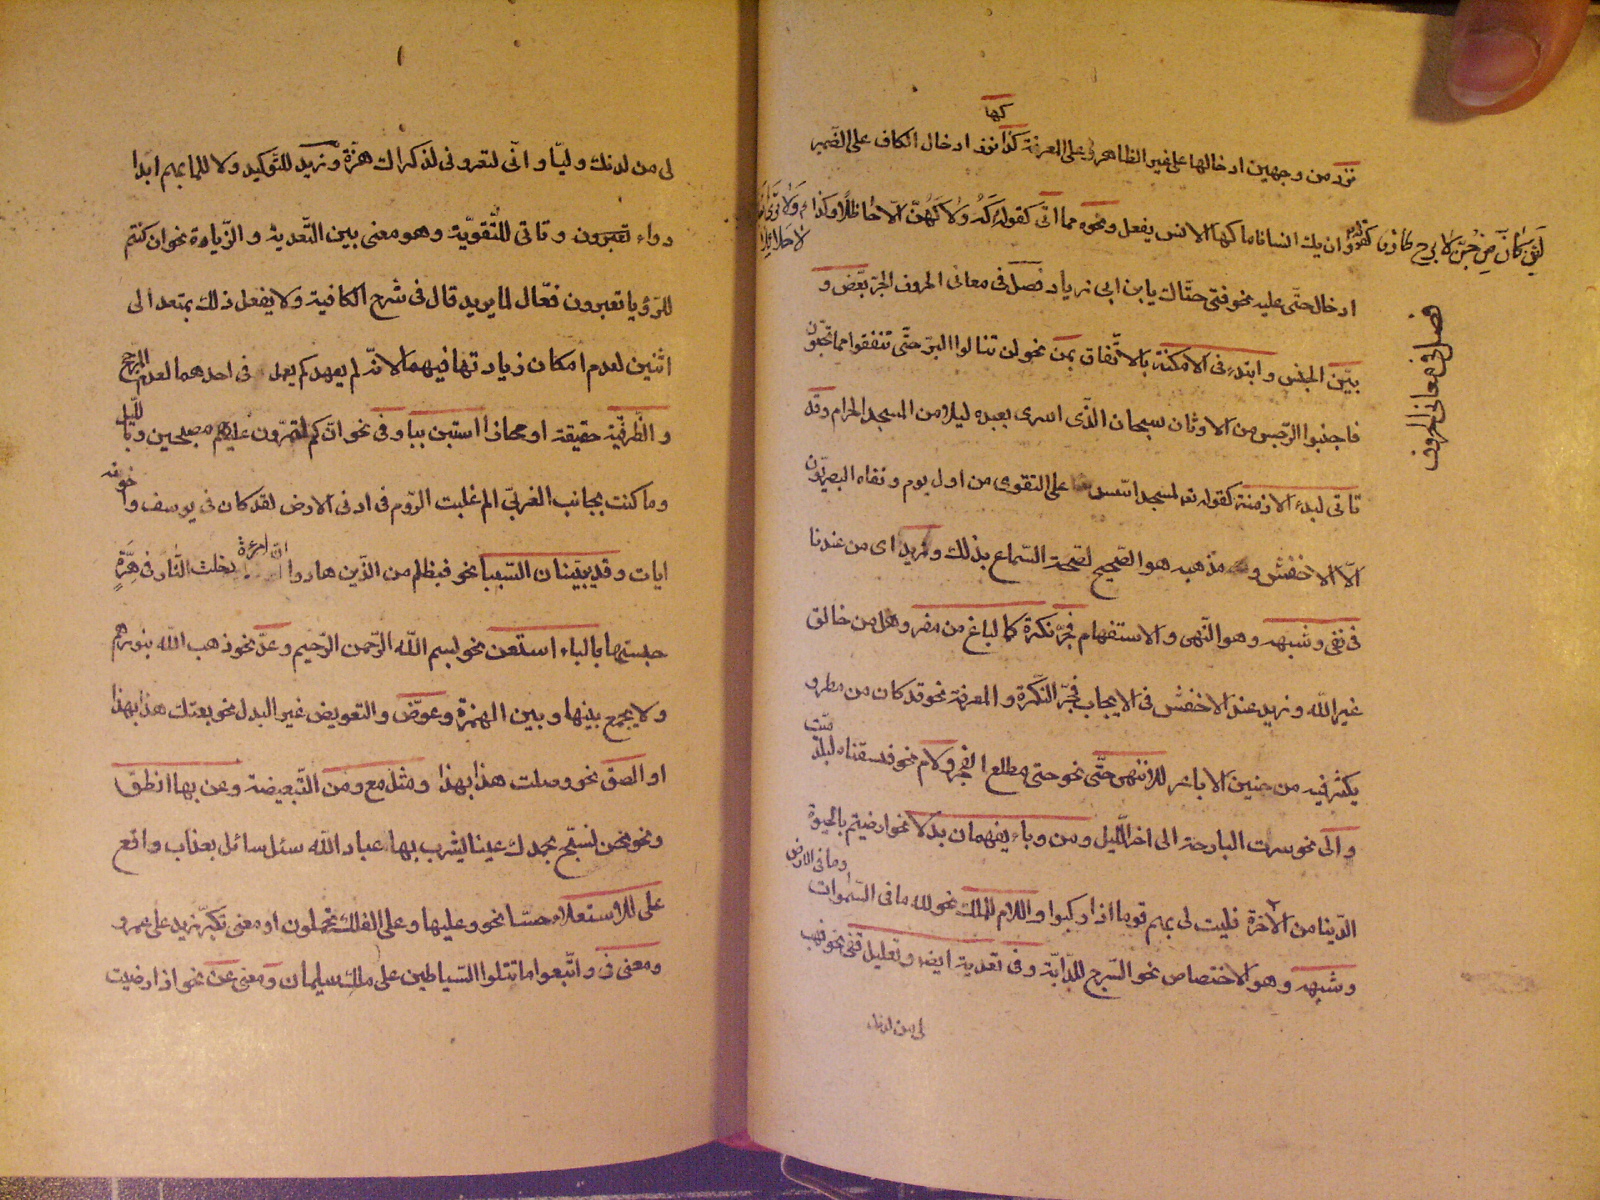 كها
نزر من وجهين ادخالها على غير الظاهر وعلى المعرفة كذا نزر ادخال الكاف على الضمير
لئن كان من جن لابرح طارقا وان يك انسانا ما كها الانس يفعل ونحوه مما اتى كقوله كه ولا كهن الا حاظلا وكذا
ادخال حتى عليه نحو فتى حتاك يا بن ابى زياد فصل فى معانى الحروف الجر بعّض و
فصل فى معانى الحروف
بيّن الجنس وابتدء فى الامكنة بالاتّفاق بمن نحو لن تنالوا البرّ حتّى تنفقوا مما تحبّون
فاجتنبوا الرّجس من الاوثان سبحان الّذى اسرى بعبده ليلا من المسجد الحرام وقد
تاتى لبدء الازمنة كقوله تعـ لمسجد اسّس على التقوى من اول يوم ونفاه البصريّون
الّا الاخفش و مذهبه هو الصّحيح لصّحة السّماع بذلك وزيد اى من عندنا
فى نفى وشبهه وهو النّهى والاستفهام فجرّ نكرة كما لباغ من مفر وهل من خالق
غير الله وزيد عند الاخفش فى الايجاب فجرّ النّكرة والمعرفة نحو قد كان من مطر و
يكثر فيه من حنين الاباعر للانتهى حتّى نحو حتى مطلع الفجر ولام نحو فسقناه لبلد ميّت
والى نحو سرت البارحة الى اخر اللّيل ومن وباء يفهمان بدلا نحو ارضيتم بالحيوة
الدّينا من الاخرة فليت لى بهم قوما اذا ركبوا واللام للملك نحو لله ما فى السّموات وما فى الارض
وشبهه وهو الاختصاص نحو السّرج للدّابّة وفى تعدية ايضا وتعليل قفى نحو فهب
لى من لدنك
لى من لدنك وليّا وانّى لتعرونى لذكراك هزّة وزيد للتّوكيد ولا للما بهم ابدا
دواء تعبرون وتاتى للتّقويّة وهو معنى بين التّعدية والزّيادة نحو ان كنتم
للرّؤيا تعبرون فعّال لما يريد قال فى شرح الكافية ولا يفعل ذلك بمتعد الى
اثنين لعدم امكان زيادتها فيهما لانّه لم يعهد فى احدهما لعدم المرجح
والظّرفيّة حقيقة او مجازا استبن ببا وفى نحو انّكم لتمرّون عليهم مصبحين وباللّيل
وما كنت بجانب الغربّى الم غلبت الرّوم فى ادنى الارض لقد كان فى يوسف واخوته
ايات وقد يبيّنان السّببا نحو فبظلم من الّذين هادوا انّ امرءة دخلت النّار فى هرّة
حبستها بالباء استعن نحو بسم الله الرّحمن الرّحيم وعدّ نحو ذهب الله بنورهم
ولا يجمع بينها وبين الهمزة وعوّض والتعويض غير البدل نحو بعتك هذا بهذا
او الصق نحو وصلت هذا بهذا ومثل مع ومن التّبعيضة وعن بها انطق
ونحو نحن نسبّح بحمدك عينا يشرب بها عباد الله سئل سائل بعذاب واقع
على للاستعلاء حسّا نحو وعليها وعلى الفلك تحملون او معنى تكبّر زيد على عمرو
ومعنى فى واتّبعوا ما تتلوا الشّياطين على ملك سليمان ومعنى عن نحو اذا رضيت